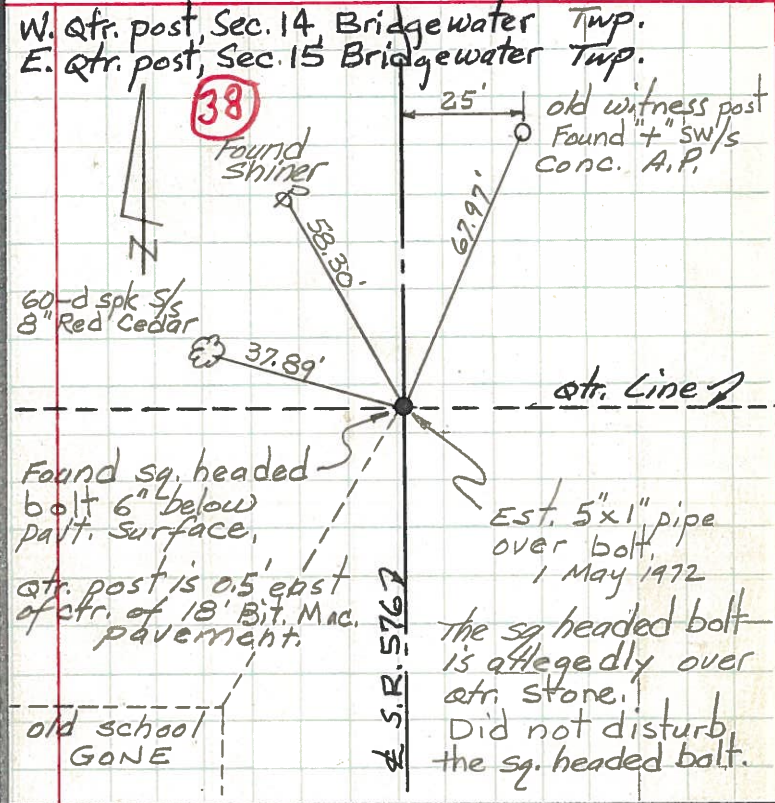 W. Qtr. post, Sec. 14, Bridgewater Twp.
E. Qtr. post, Sec. 15 Bridgewater Twp.
38
25'
old witness post
Found "+" SW/s
Conc. A.P.
Found
Shiner
67.97'
58.30'
N
60-d spk S/s
8" Red Cedar
37.89'
Qtr. Line
Found sq. headed
bolt 6" below
pavt. surface.
Est. 5"x1" pipe
over bolt.
1 May 1972
Qtr. post is 0.5' east
of ctr. of 18' Bit. Mac.
pavement.
℄ S.R. 576
The sq headed bolt
is allegedly over
qtr. stone.
Did not disturb
the sq. headed bolt.
old school
GONE